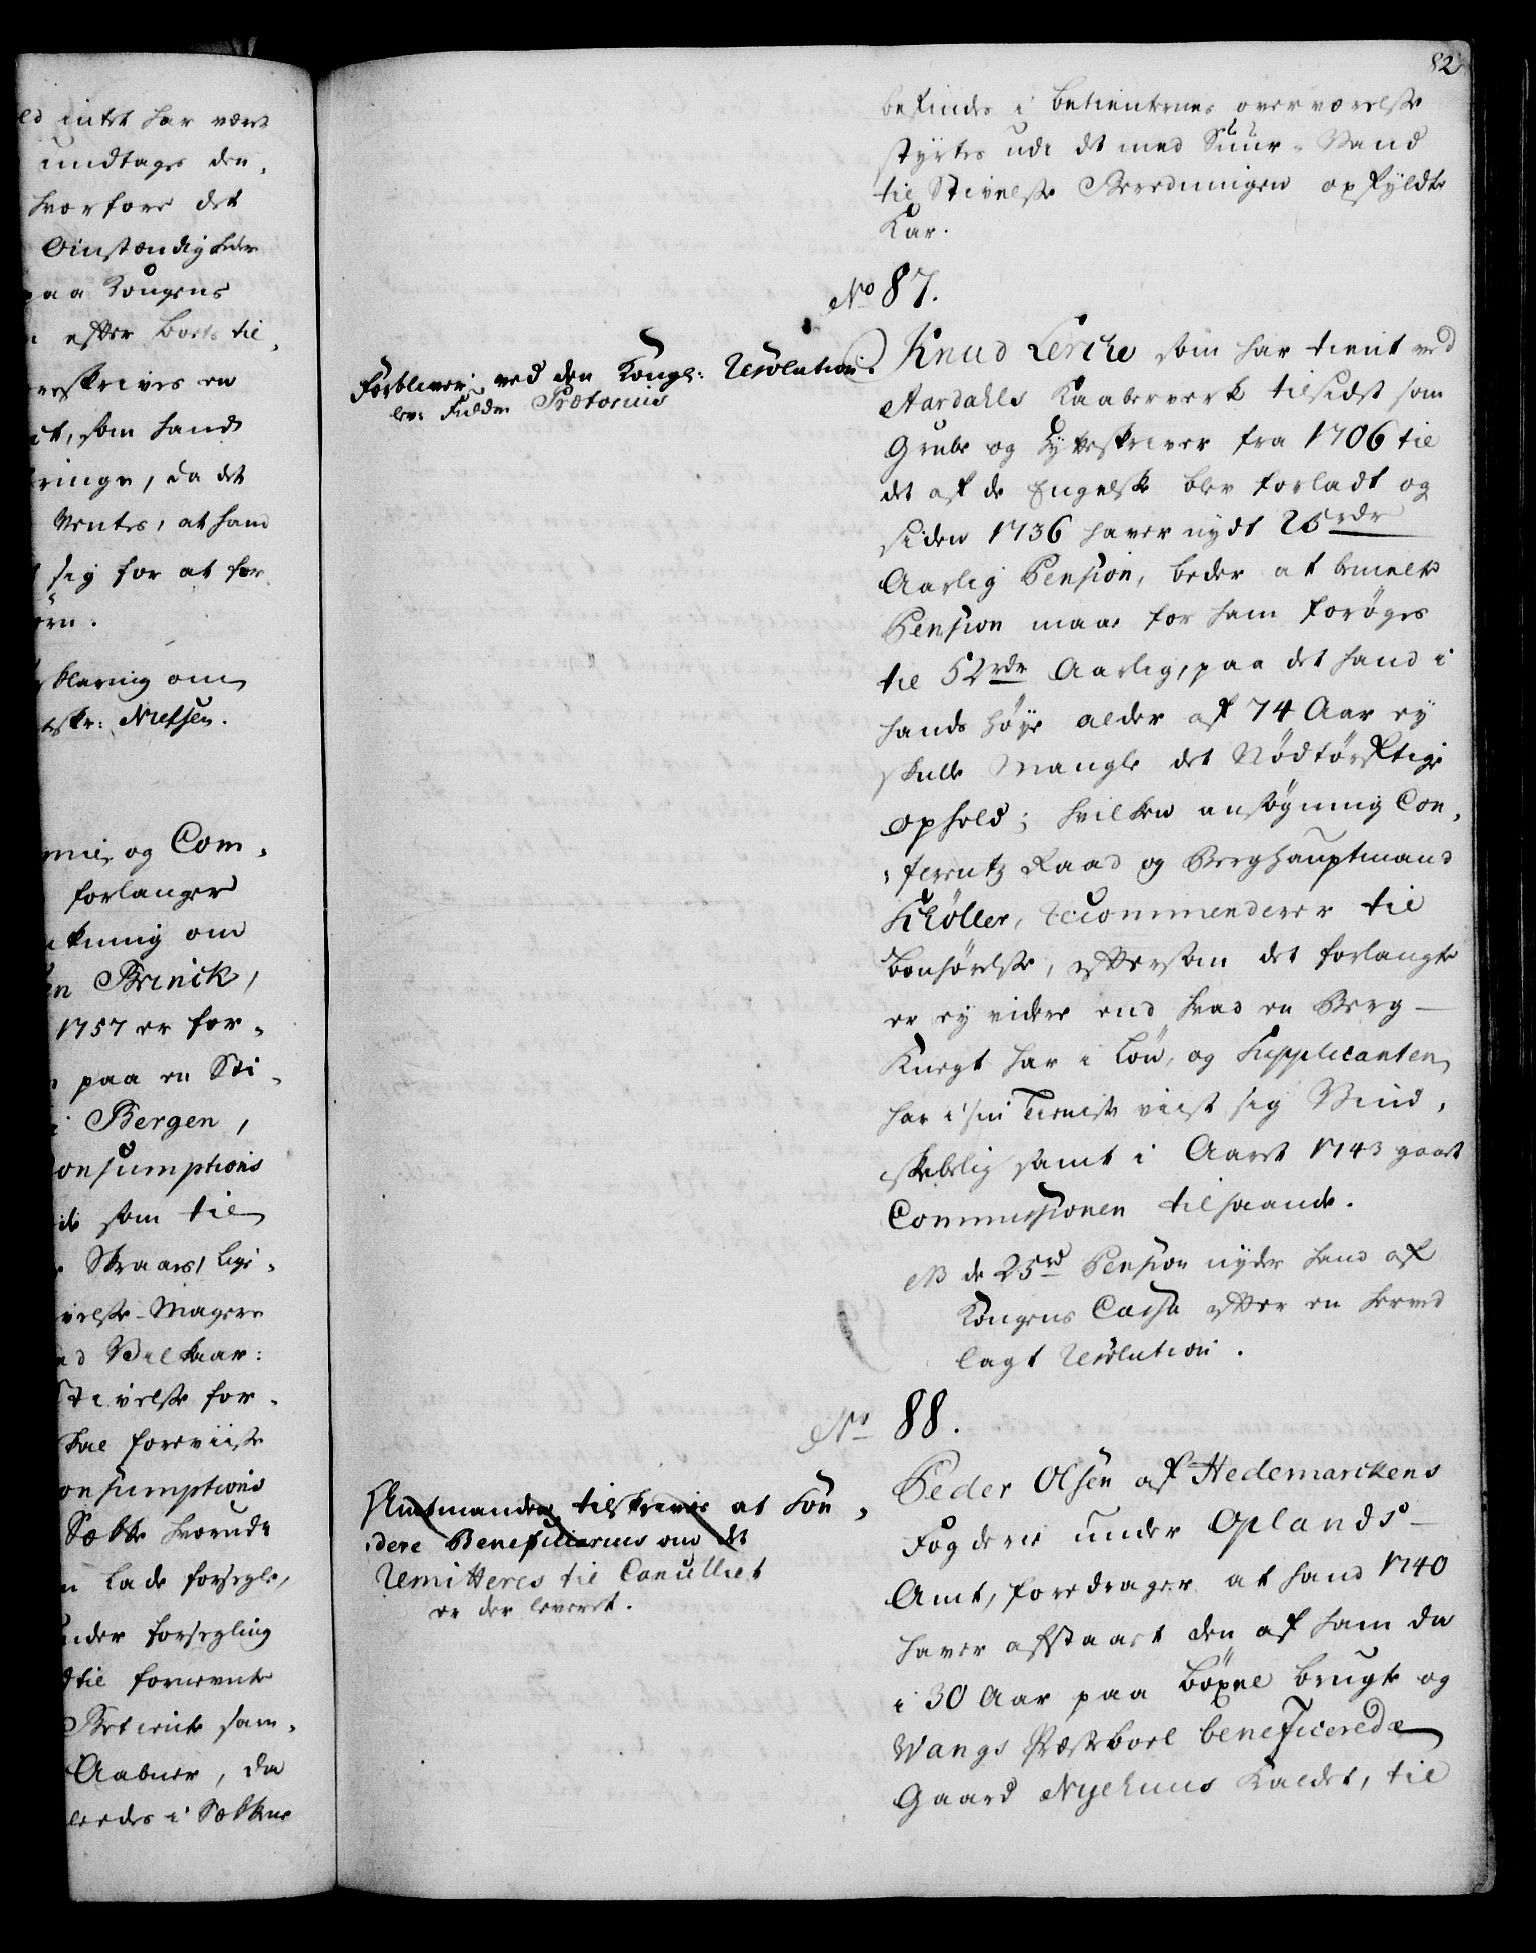 ld intet har været
undtages den,
hvorfore det
Omstændigheder
paa Kongens
efter Bortstil,
reskrives en
ict, som hand
ringe, da det
Ventes, at hand
sig for at for
örn.
rklaring om
tskr: Nielsen.
mie, og Com,
forlanger
kning om
en Brinck,
1757 er for,
paa en Sti,
i Bergen,
Consumptions
de som til
Skraaes, lige,
ivelse-Magere
ed Vilkaar:
Stivelse for,
kal foreviise
onsumptions
Sække hvorudi
n lade forsegle,
under forsegling
dtil fornevnte
Betiente sam,
Aabner, da
leedes i Sækkene
82
befindes i betienternes overværelse
styrtes udi det med Suur-Vand
til Stivelse Beredningen opfyldte
Kar.
No 87.
Forbliver ved den Kongl: Resolution.
lev: Fuldm Prætorius
Knud Lerche som har tient ved
Aardahls Kaaberverk tilsidst som
Grube og Hytteskriver fra 1706 til
det af de Engelske blev forladt og
siden 1736 haver nydt 25 rdr
Aarlig Pension, beder at bemelte
Pension maae for ham forøges
til 52 rdr Aarlig, paa det hand i
hands høye alder af 74 Aar ey
skulle Mangle det Nødtørftige
ophold; hvilken ansøgning Con,
,ferentz Raad og Berghauptmand
Schöller, recommenderer til
bønhørelse, eftersom det forlangte
er ey videre end hvad en Berg-
Knegt har i Løn, og Supplicanten
har i sin Tieniste viist sig Vind,
skibelig samt i Aaret 1743 gaaet
Commissionen tilhaande.
NB de 25 rd Pension nyder hand af
Kongens Cassa efter en herved
lagt Resolution.
No 88.
Amtmanden tilskrives at Son,
,dere Beneficiarius om det
Remitteres til Cancelliet
er der leveret.
Peder Olsen af Hedemarckens
Fogderie under Oplands-
Amt, foredrager at hand 1740
haver afstaaet den af ham da
i 30 Aar paa Böxel brugte og
Vangs Præsteboel beneficerede
Gaard Nyehuus kaldet, til